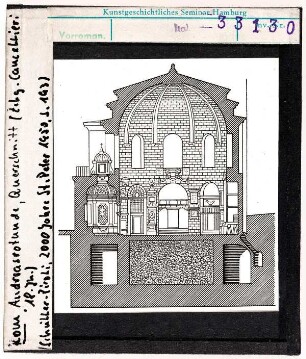 Kunstgeschichtliches Seminar Hamburg
Vorroman.
Ital
33130
Inv. Nr.
Rom Andreasrotunde, Querschnitt (Ebg. Cavallieri
16. Jh.)
(Schüller-Piroli, 2000 Jahre St. Peter 1950, S. 143)